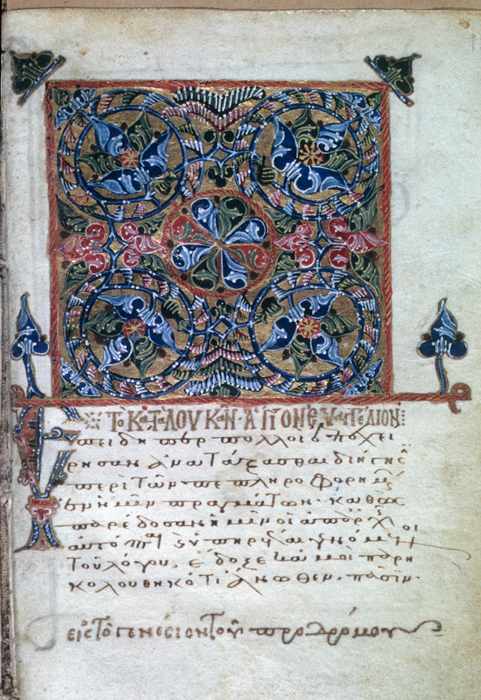 ΤΟ Κ(Α)Τ(Α) ΛΟΥΚΑΝ ΑΓΙΟΝ ΕΥΑΓΓΕΛΙΟΝ
Ἐπειδήπερ πολλοὶ ἐπεχεί
ρησαν ἀνατάξασθαι διήγησ
περὶ τῶν πεπληροφορημ
ἐν ἡμῖν πραγμάτων· καθὼς
παρέδοσαν ἡμῖν οἱ ἀπ' ἀρχ
αὐτόπται καὶ ὑπηρέται γενόμενοι
τοῦ λόγου, ἔδοξε κἀμοὶ παρη
κολουθηκότι ἄνωθεν πᾶσιν·
εἰς τὸ γενέσιον τοῦ προδρόμου